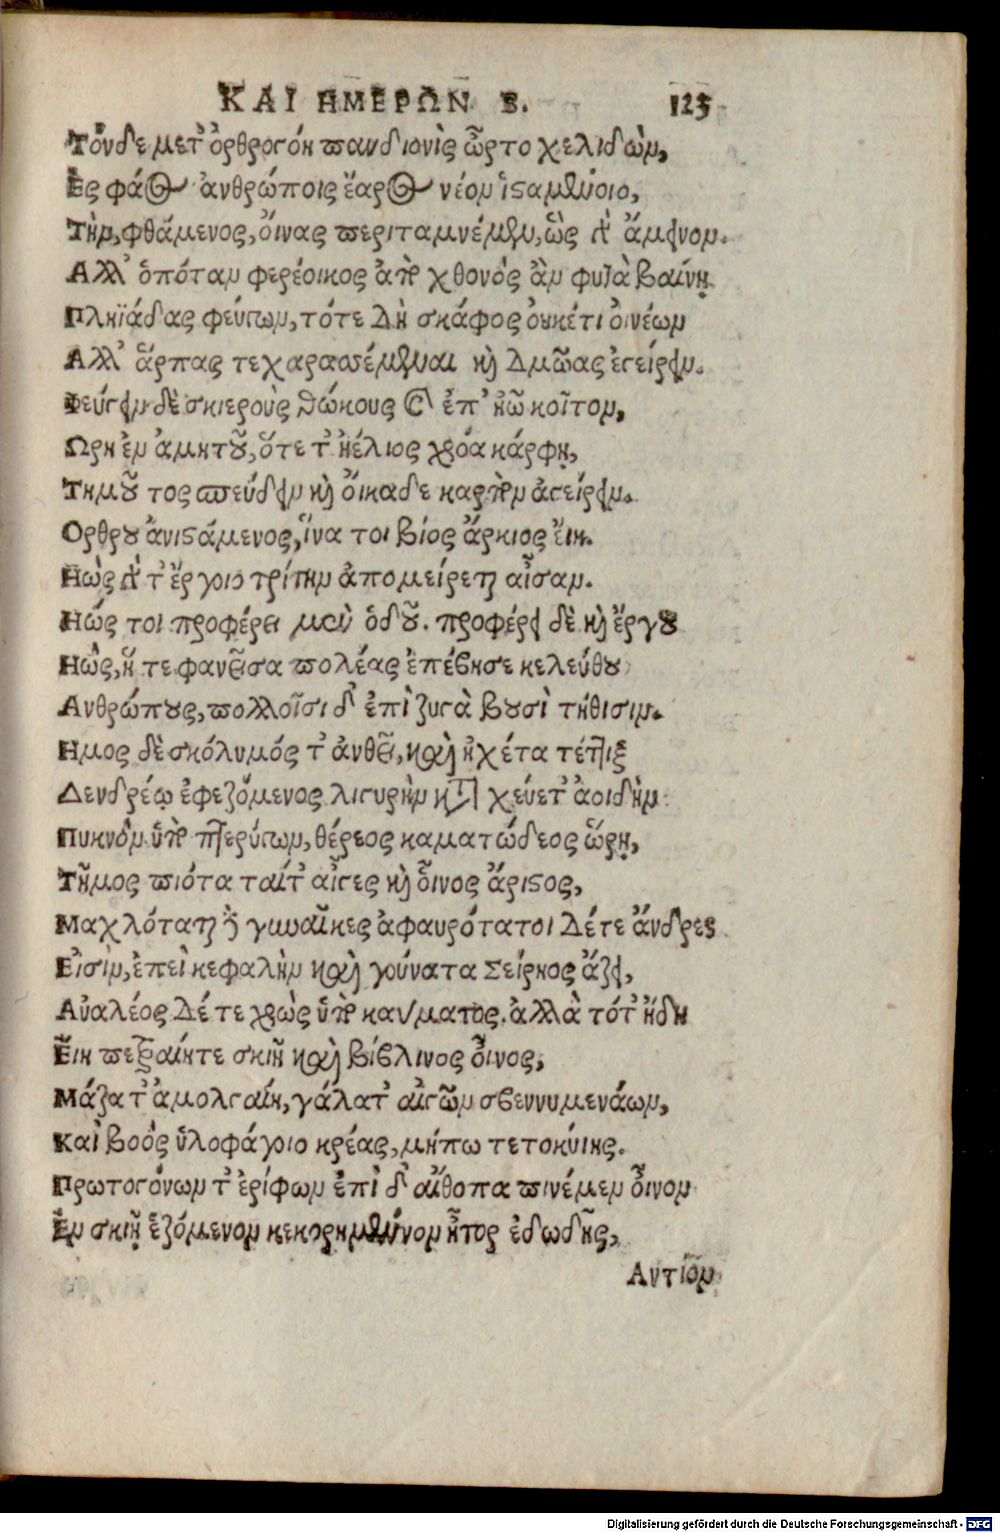 ΚΑΙ ΗΜΕΡΩΝ Β. 125
Τόνδε μετ' ὀρθρογόη πανδιονὶς ὦρτο χελιδὼν,
Ἐς φάος ἀνθρώποις ἔαρος νέον ἱσαμένοιο,
Τὴν, φθάμενος, οἴνας περιταμνέμεν, ὣς γὰ ἄμεινον.
Αλλ' ὁπόταν φερέοικος ἀπὸ χθονὸς ἂμ φυτὰ βαίνῃ
Πληϊάδας φεύγων, τότε δὴ σκάφος οὐκέτι οἰνέων
Αλλ' ἅρπας τε χαρασσέμεναι καὶ δμῶας ἐγείρειν.
Φεύγειν δὲ σκιεροὺς θώκους καὶ ἐπ' ἠῶ κοῖτον,
Ωρη ἐν ἀμητοῦ, ὅτε τ' ἠέλιος χρόα κάρφῃ,
Τημοῦτος σπεύδειν καὶ οἴκαδε καρπὸν ἀγείρειν.
Ορθρου ἀνιστάμενος, ἵνα τοι βίος ἄρκιος ἔιη.
Ηὼς γὰρ τ' ἔργοιο τρίτην ἀπομείρεται αἶσαν.
Ηώς τοι προφέρει μὲν ὁδοῦ. προφέρει δὲ καὶ ἔργου
Ηὼς, ἥ τε φανεῖσα πολέας ἐπέβησε κελεύθου
Ανθρώπους, πολλοῖσι δ' ἐπὶ ζυγὰ βουσὶ τήθισιν.
Ημος δὲ σκόλυμός τ' ἀνθεῖ, καὶ ἠχέτα τέττιξ
Δενδρέῳ ἐφεζόμενος λιγυρὴν κατ χεύετ' ἀοιδὴν
Πυκνὸν ὑπὸ πτερύγων, θέρεος καματώδεος ὥρῃ,
Τῆμος πιότα ταίτ' αἶγες καὶ οἶνος ἄριστος,
Μαχλόταται δὲ γυναῖκες ἀφαυρότατοι δέτε ἄνδρες
Εἰσὶν, ἐπεὶ κεφαλὴν καὶ γούνατα Σείριος ἄζει,
Αὐαλέος δέ τε χρὼς ὑπὸ καύματος. ἀλλὰ τότ' ἤδη
Εἴη πετραίη τε σκιὴ καὶ βίβλινος οἶνος,
Μάζα τ' ἀμολγαίη, γάλα τ' αἰγῶν σβεννυμενάων,
Καὶ βοὸς ὑλοφάγοιο κρέας, μήπω τετοκυίης.
Πρωτογόνων τ' ἐρίφων ἐπὶ δ' αἴθοπα πινέμεν οἶνον
Ἐν σκιῇ ἑζόμενον κεκορημένον ἦτορ ἐδωδῆς,
Αντίον
Digitalisierung gefördert durch die Deutsche Forschungsgemeinschaft - DFG